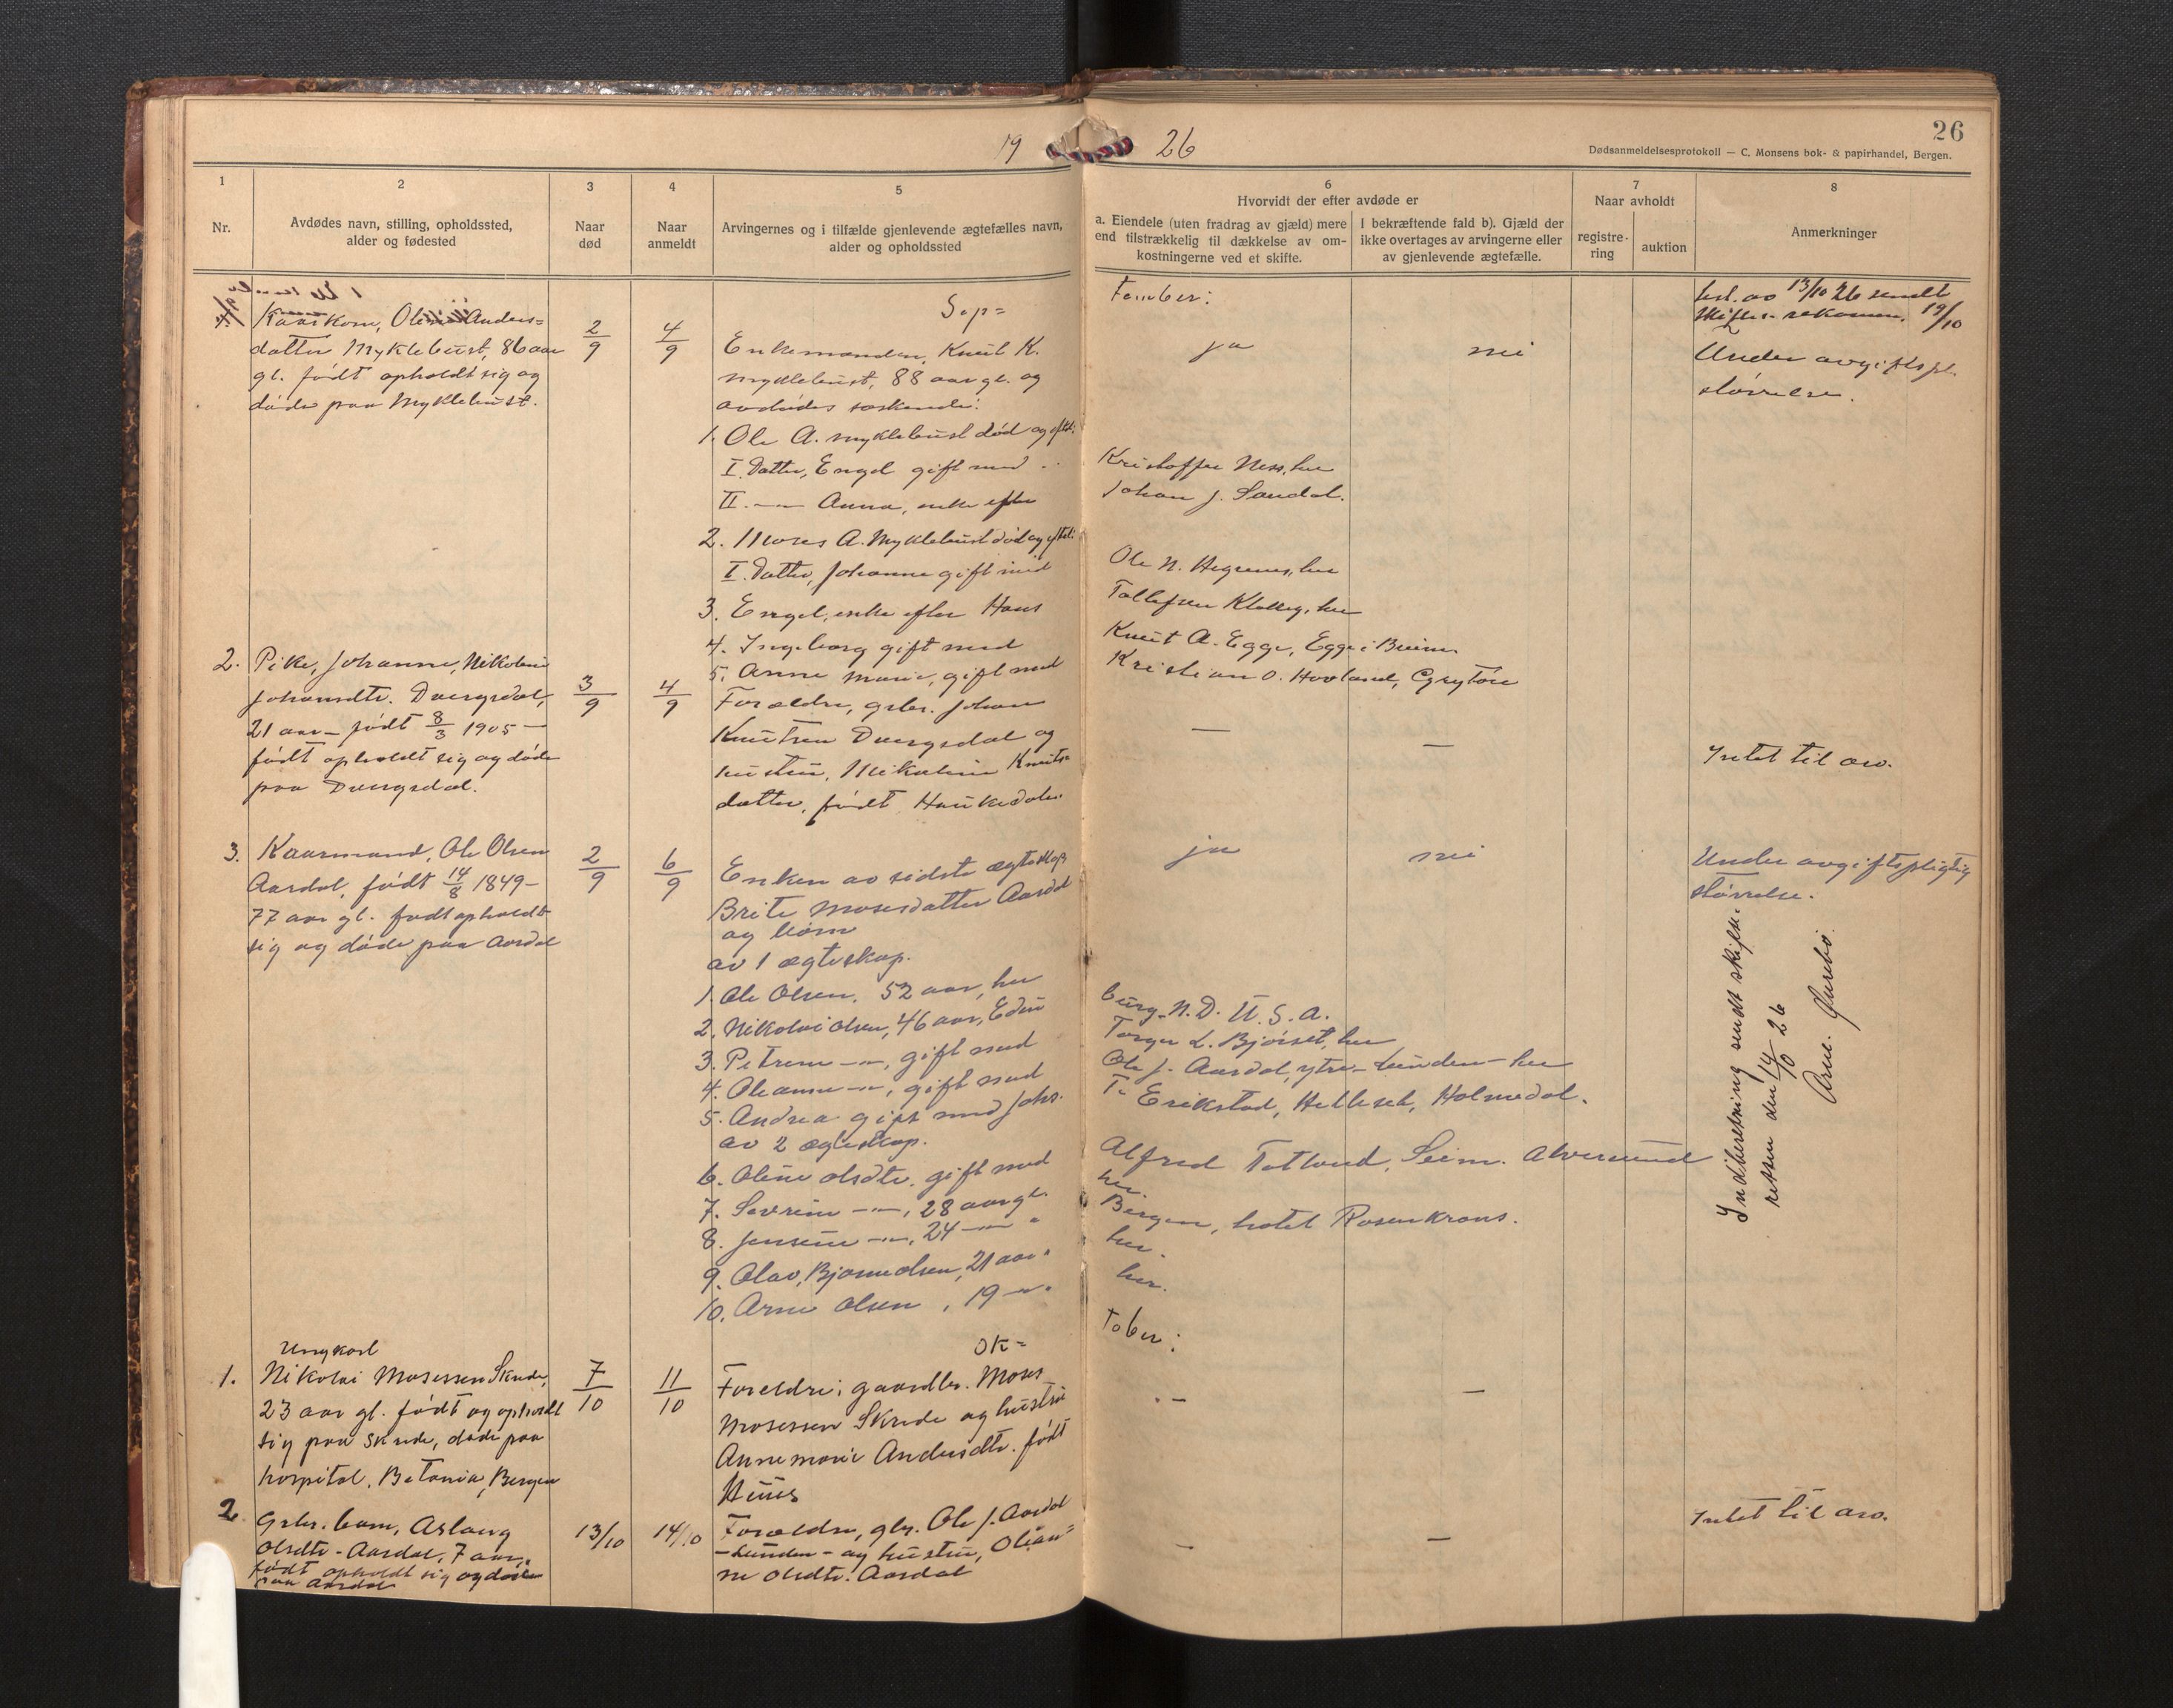 19 26
26
Dødsanmeldelsesprotokoll — C. Monsens bok- & papirhandel, Bergen.
1
Nr.
2
Avdødes navn, stilling, opholdssted,
alder og fødested
3
Naar
død
4
Naar
anmeldt
5
Arvingernes og i tilfælde gjenlevende ægtefælles navn,
alder og opholdssted
6
Hvorvidt der efter avdøde er
a. Eiendele (uten fradrag av gjæld) mere
end tilstrækkelig til dækkelse av om-
kostningerne ved et skifte.
I bekræftende fald b). Gjæld der
ikke overtages av arvingerne eller
av gjenlevende ægtefælle.
7
Naar avholdt
registre-
ring
auktion
8
Anmerkninger
Sep=
tember:
Kaarkone, Anders=
datter Myklebust, 86 aar
gl. født opholdt sig og
døde paa Myklebust.
2/9
4/9
Enkemanden, Knut K.
Myklebust, 88 aar gl. og
avdødes søskende:
1. Ole A. Myklebust død og efterl:
I. Datter, Engel gift med
Kristoffer Ness, her
II. —"— Anna, enke efter
Johan J. Sandal.
2. Moses A. Myklebust død og efterl:
I. Datter, Johanne gift med
Ole N. Hegrenes, her
3. Engel, enke efter Hans
Tollefsen Klakeg, her
4. Ingeborg gift med
Knut A. Egge, Egge i Breim
5. Anne Marie, gift med
Kristian O. Hovland, Grytøre
ja
nei
av 13/10 26 sendt
19/10
Under avgiftspl.
størrelse.
2. Pike, Johanne, Nikoline
Johansdtr. Dvergsdal,
21 aar — født 8/3 1905 —
født opholdt sig og døde
paa Dvergsdal.
3/9
4/9
Forældre, grbr. Johan
Knutsen Dvergsdal og
hustru, Nikoline Knuts=
datter, født Haukedalen
—
—
Intet til arv.
3. Kaarmand, Ole Olsen
Aardal, født 14/8 1849 —
77 aar gl. født opholdt
sig og døde paa Aardal
2/9
6/9
Enken av sidste ægteskap
Brite Mosesdatter Aardal
og børn
av 1 ægteskap.
1. Ole Olsen, 52 aar, her
2. Nikolai Olsen, 46 aar, Edin
burg N.D. U.S.A.
3. Petrine —"—, gift med
Torger L. Bjørset, her
4. Oleanne —"—, gift med
Ole J. Aardal, ytre - Lunden - her
5. Andrea gift med Johs.
T. Erikstad, Helleset, Holmedal.
av 2 ægteskap.
6. Oline Olsdtr. gift med
Alfred Totland, Seim. Alversund
7. Sevrine —"—, 28 aar gl.
her.
8. Jensine —"—, 24 —"— "
Bergen, hotel Rosenkrans.
9. Olav, Bjarne Olsen, 21 aar "
her.
10. Arne Olsen, 19 —"— "
her.
ja
nei
Under avgiftspligtig
størrelse.
Indberetning sendt skifte-
retten den 14/10 26
Arne.
Ok=
tober:
1. Ungkarl
Nikolai Mosessen Skrede,
23 aar gl. født og opholdt
sig paa Skrede, døde paa
hospital, Betania, Bergen
7/10
11/10
Foreldre: gaardbr. Moses
Mosessen Skrede og hustru
Annemarie Andersdtr. født
Huus
—
—
2. Grbr. barn, Aslaug
Olsdtr. - Aardal, 7 aar,
født opholdt sig og døde
paa Aardal
13/10
14/10
Forældre, gbr. Ole J. Aardal
- Lunden - og hustru, Olian=
ne Olsdtr. Aardal
—
—
Intet til arv.